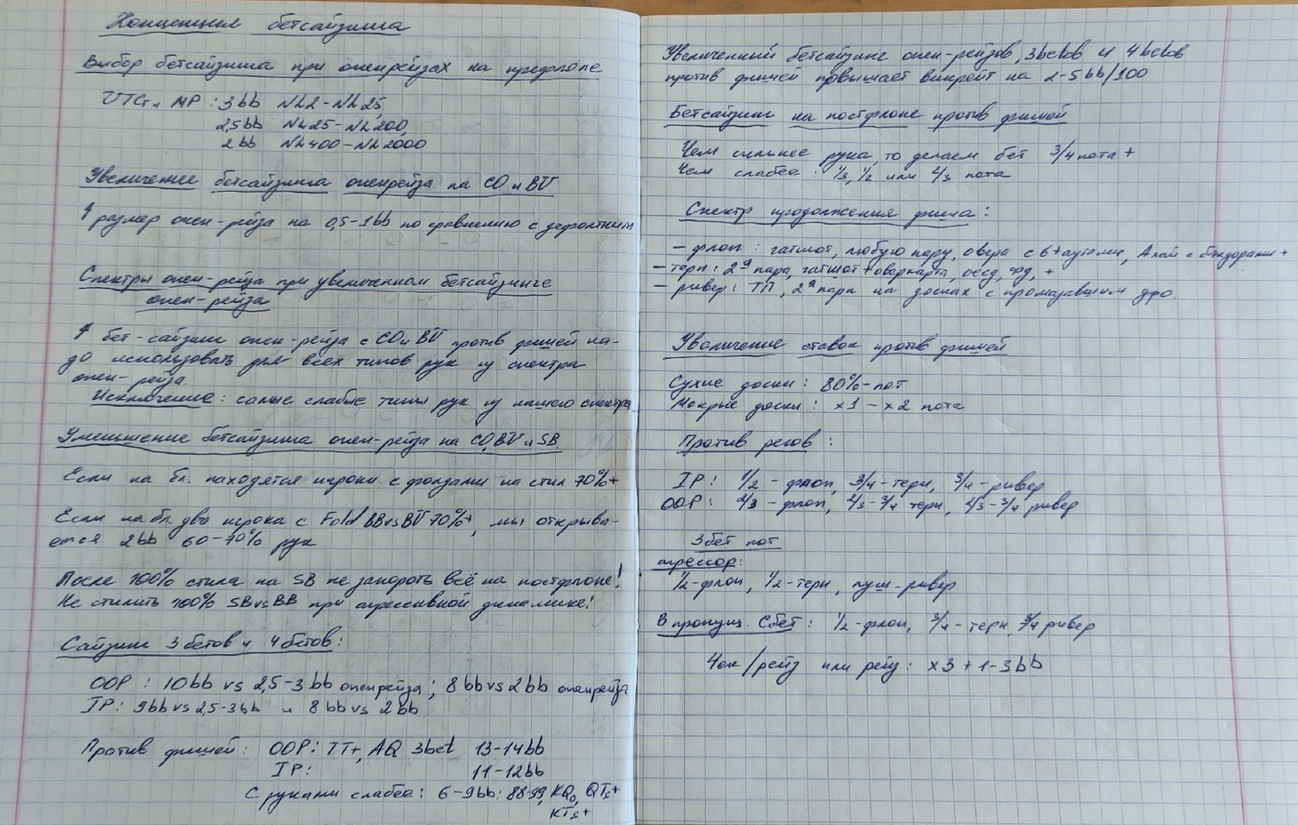 Концепция бетсайзинга
Выбор бетсайзинга при опенрейзах на префлопе
UTG и MP : 3bb NL2-NL25
2,5bb NL25-NL200
2bb NL400-NL2000
Увеличение бетсайзинга опенрейза на CO и BU
↑ размер опен-рейза на 0,5-1bb по сравнению с дефолтным
Спектры опен-рейза при увеличенном бетсайзинге
опен-рейза
↑ бет-сайзинг опен-рейза с CO и BU против фишей на-
до использовать для всех типов рук из спектра
опен-рейза.
Исключение : самые слабые типы рук из нашего спектра
Уменьшение бетсайзинга опен-рейза на CO, BU и SB
Если на бл. находятся игроки с фолдами на стил 70%+
Если на бл. два игрока с Fold BB vs BU 70%+, мы открыва-
емся 2bb 60-70% рук
После 100% стила на SB не запороть всё на постфлопе!
Не стилить 100% SB vs BB при агрессивной динамике!
Сайзинг 3бетов и 4бетов:
OOP : 10bb vs 2,5-3bb опенрейза ; 8bb vs 2bb опенрейза
IP: 9bb vs 2,5-3bb и 8bb vs 2bb
Против фишей: OOP: TT+, AQ 3bet 13-14bb
IP: 11-12bb
С руками слабее: 6-9bb: 88-99, KQo, QTs+
KTs+
Увеличенный бетсайзинг опен-рейзов, 3betов и 4betов
против фишей повышает винрейт на 2-5bb/100
Бетсайзинг на постфлопе против фишей
Чем сильнее рука, то делаем бет 3/4 пота +
Чем слабее : 1/3, 1/2 или 2/3 пота
Спектр продолжения фиша :
- флоп : гатшот, любую пару, овера с 6+аутами, Ахай с бэкдорами +
- терн : 2ª пара, гатшот+оверкарта, оесд, фд, +
- ривер : ТП, 2ª пара на досках с промазавшим дро.
Увеличение ставок против фишей
Сухие доски : 80%-пот
Мокрые доски : x1 - x2 пота
Против регов :
IP: 1/2 - флоп, 3/4-терн, 3/4-ривер
OOP: 2/3 - флоп, 2/3-3/4 терн, 2/3-3/4 ривер
3бет пот
агрессор:
1/2-флоп, 1/2-терн, пуш-ривер
В пропущ. Сбет : 1/2-флоп, 3/4-терн, 3/4 ривер
Чек/рейз или рейз : x3 + 1-3bb